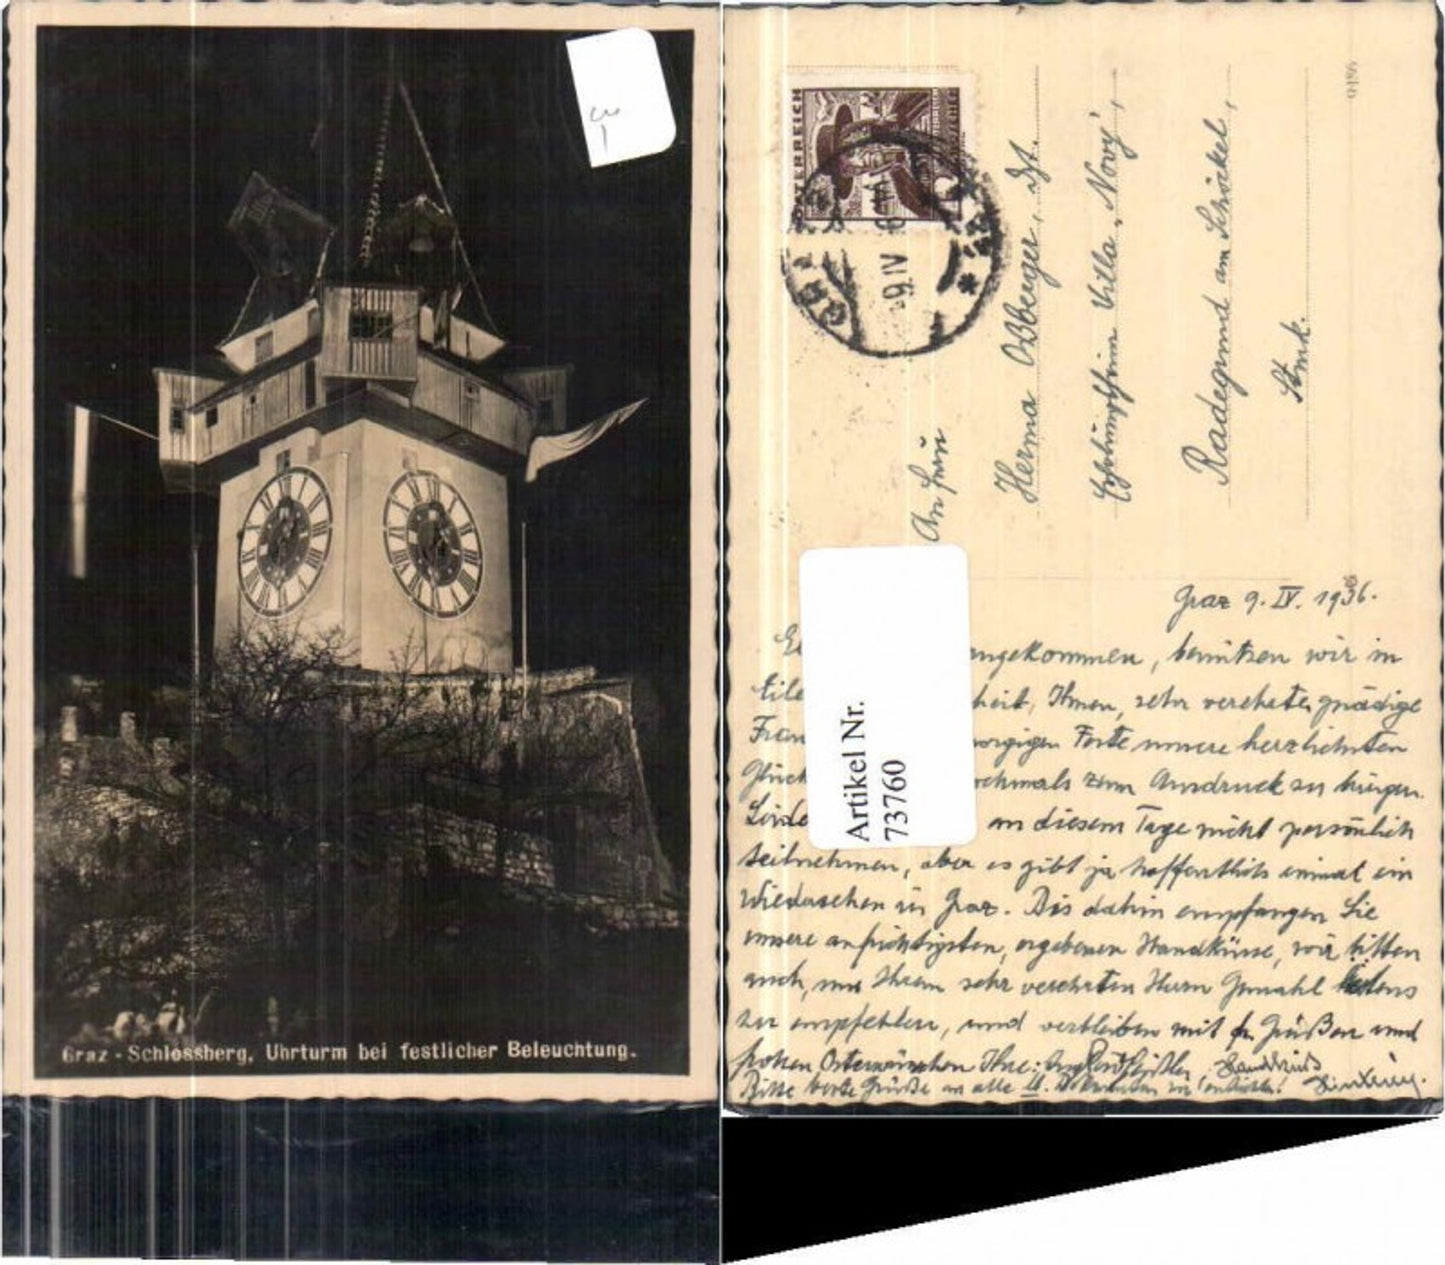 Graz - Schlossberg, Uhrturm bei festlicher Beleuchtung.
ÖSTERREICH
9 IV
An Frau
Herma
Villa „Novy",
Radegund am Schöckel,
Stmk.
9486
Artikel Nr.
73760
Graz 9. IV. 1936.
angekommen, benützen wir in
Eile heit, Ihnen, sehr verehrte, gnädige
Frau Feste unsere herzlichsten
Glück nochmals zum Ausdruck zu bringen.
Leide an diesem Tage nicht persönlich
teilnehmen, aber es gibt ja hoffentlich einmal ein
Wiedersehen in Graz. Bis dahin empfangen Sie
unsere aufrichtigsten, ergebenen Handküsse, wir bitten
auch, uns Ihrem sehr verehrten Herrn Gemahl bestens
zu empfehlen, und verbleiben mit Grüßen und
frohen Osterwünschen Ihre:
Bitte Grüße an alle